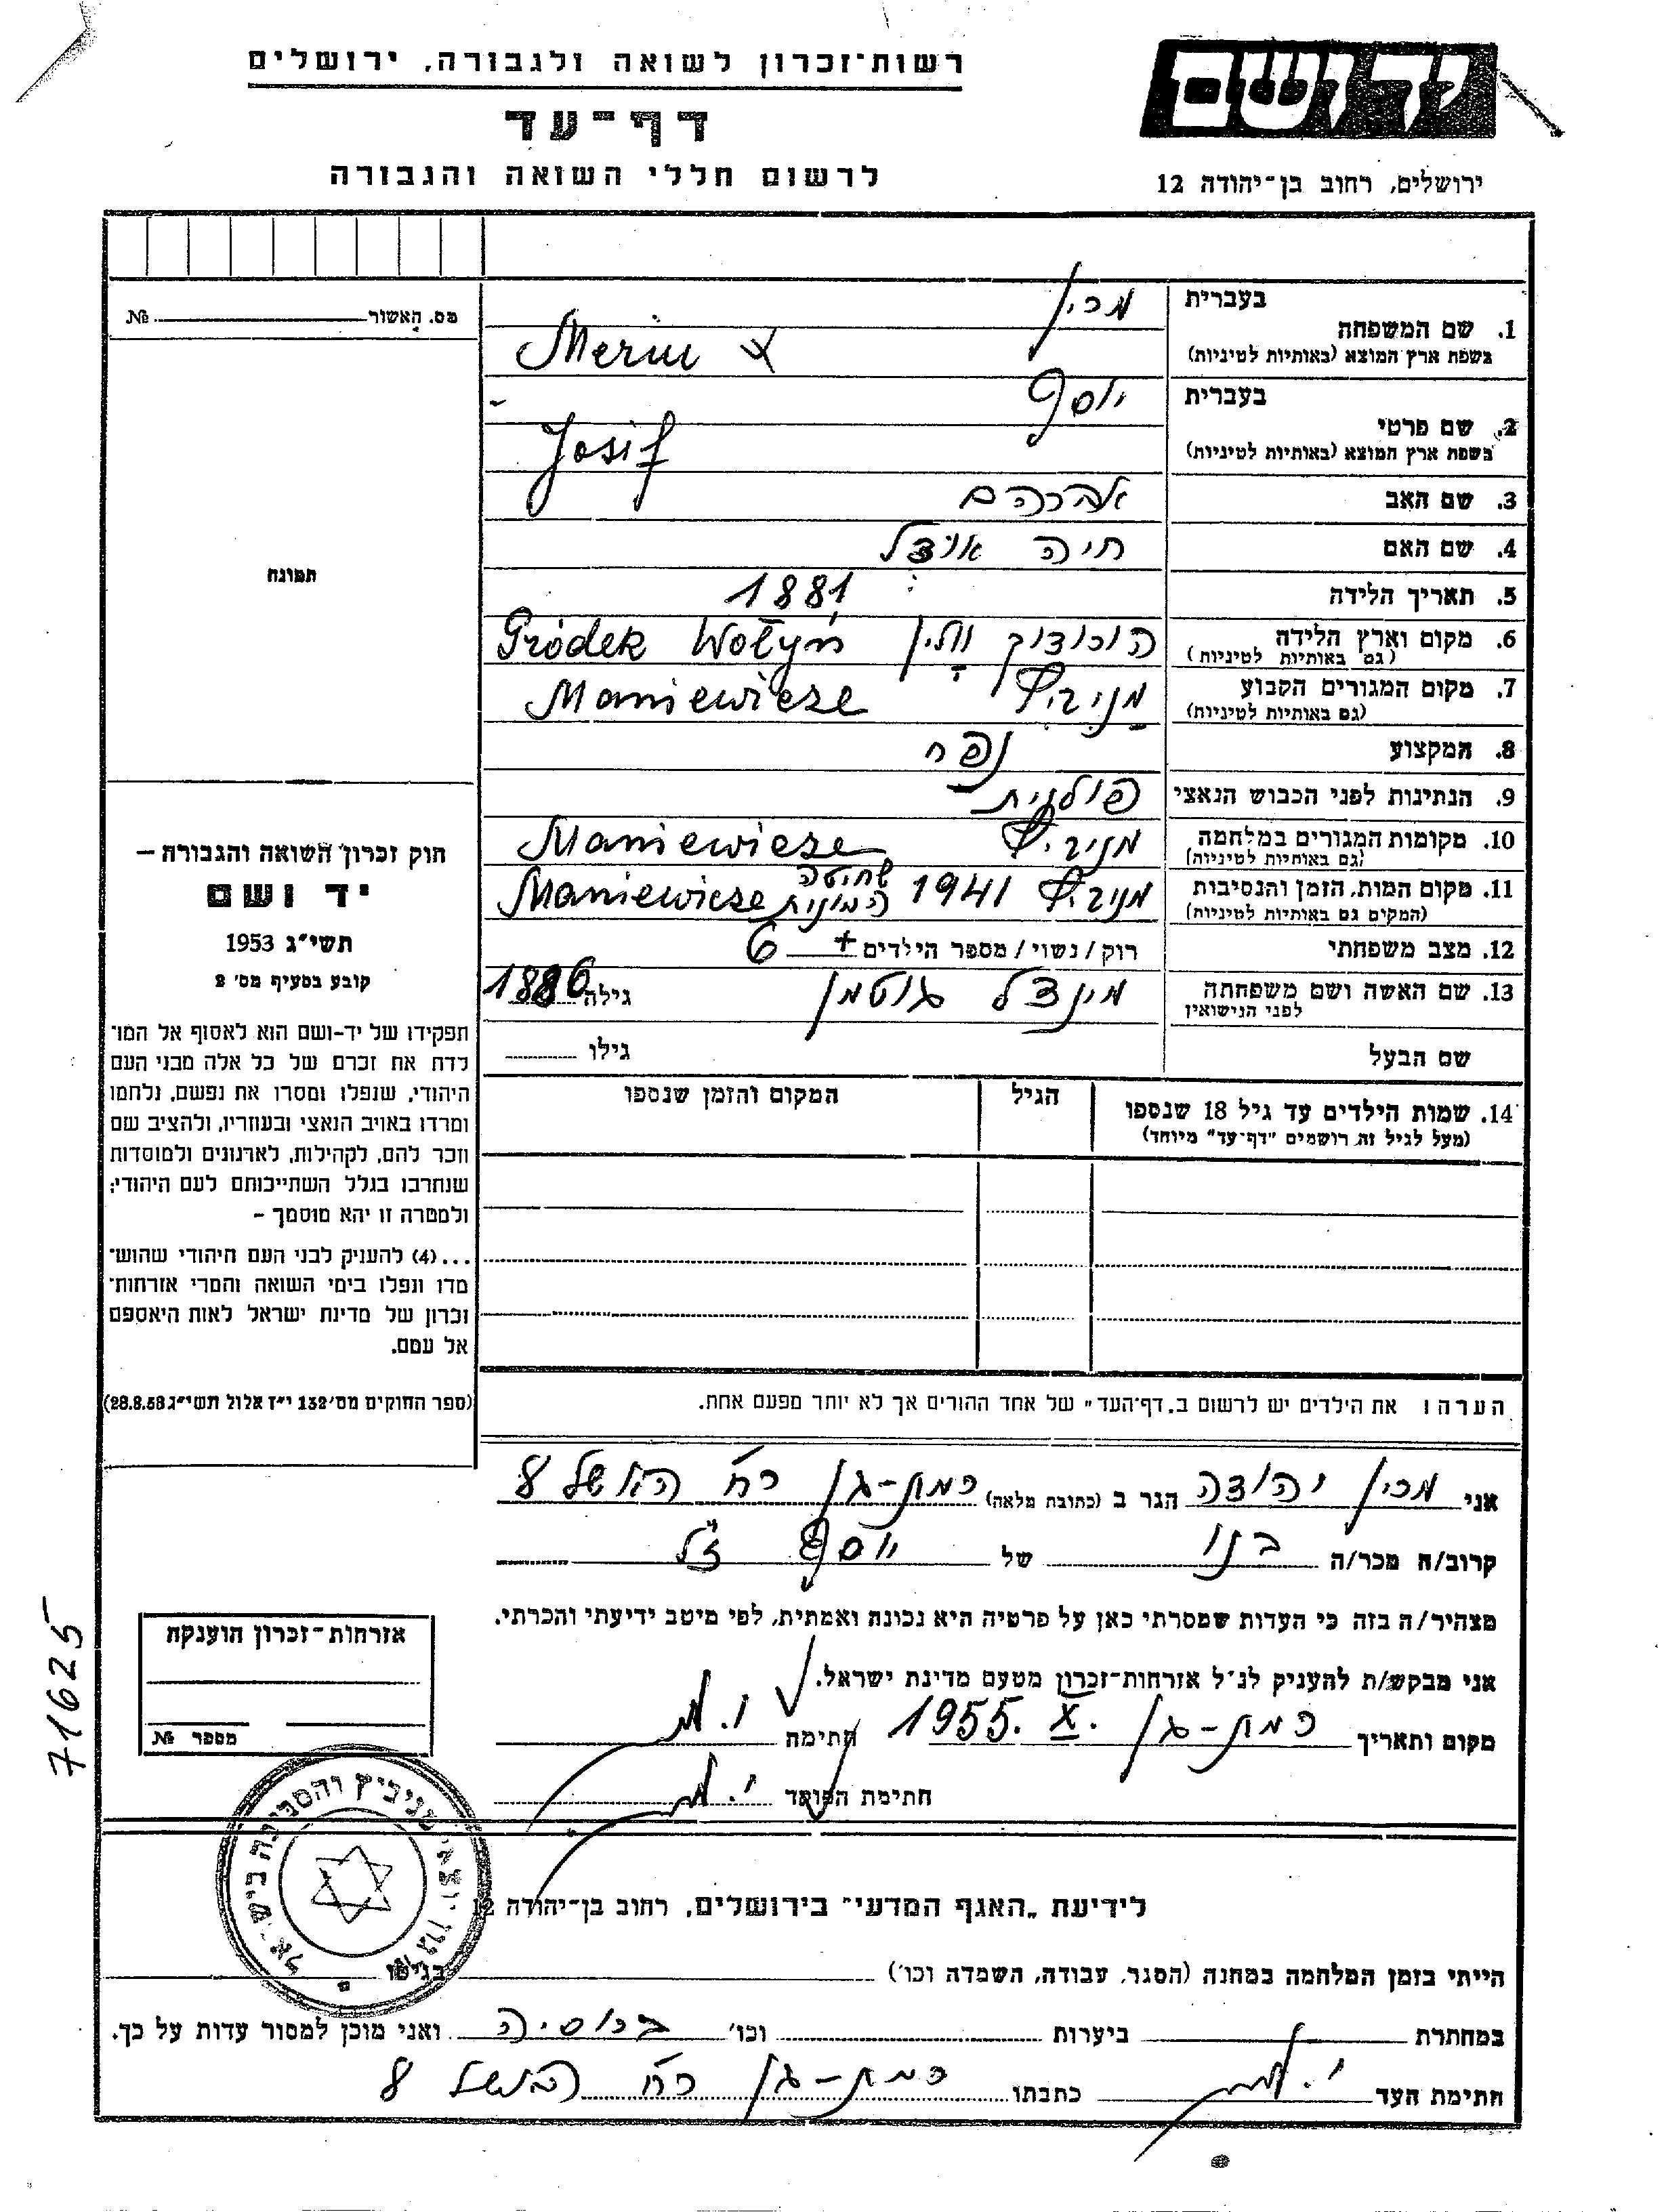 רשות־זכרון לשואה ולגבורה, ירושלים
דף־עד
לרשום חללי השואה והגבורה
יד ושם
ירושלים, רחוב בן־יהודה 12
מס. האשור № 
תמונה
חוק זכרון השואה והגבורה –
יד ושם
תשי״ג 1953
קובע בסעיף מס׳ 2
תפקידו של יד-ושם הוא לאסוף אל המו־
לדת את זכרם של כל אלה מבני העם
היהודי, שנפלו ומסרו את נפשם, נלחמו
ומרדו באויב הנאצי ובעוזריו, ולהציב שם
וזכר להם, לקהילות, לארגונים ולמוסדות
שנחרבו בגלל השתייכותם לעם היהודי;
ולמטרה זו יהא מוסמך –
...(4) להעניק לבני העם היהודי שהוש־
מדו ונפלו בימי השואה והמרי אזרחות־
זכרון של מדינת ישראל לאות היאספם
אל עמם.
(ספר החוקים מס׳ 132 י״ז אלול תשי״ג 28.8.53)
1. שם המשפחה בעברית מרין
בשפת ארץ המוצא (באותיות לטיניות) Merin
2. שם פרטי בעברית יוסף
בשפת ארץ המוצא (באותיות לטיניות) Josif
3. שם האב אברהם
4. שם האם חיה
5. תאריך הלידה 1881
6. מקום וארץ הלידה הורודוק ווֹלין Gródek Wołyń
(גם באותיות לטיניות)
7. מקום המגורים הקבוע מניביץ Maniewicze
(גם באותיות לטיניות)
8. המקצוע נפח
9. הנתינות לפני הכבוש הנאצי פולנית
10. מקומות המגורים במלחמה מניביץ Maniewicze
(גם באותיות לטיניות)
11. מקום המות, הזמן והנסיבות מניביץ 1941 שחיטה המונית Maniewicze
(המקום גם באותיות לטיניות)
12. מצב משפחתי רוק/נשוי/מספר הילדים + 6
13. שם האשה ושם משפחתה מינדל גוטמן גילה 1886
לפני הנישואין
שם הבעל גילו
14. שמות הילדים עד גיל 18 שנספו הגיל המקום והזמן שנספו
(מעל לגיל זה רושמים ״דף־עד״ מיוחד)
הערה: את הילדים יש לרשום ב„דף־העד״ של אחד ההורים אך לא יותר מפעם אחת.
אני מרין יהודה הגר ב (כתובת מלאה) רמת-גן רח׳ האשל 8
קרוב/ה מכר/ה בנו של יוסף ז״ל
מצהיר/ה בזה כי העדות שמסרתי כאן על פרטיה היא נכונה ואמתית, לפי מיטב ידיעתי והכרתי.
אני מבקש/ת להעניק לנ״ל אזרחות-זכרון מטעם מדינת ישראל.
מקום ותאריך רמת-גן X. 1955. חתימה י. מ
חתימת הפוקד י. מ
אזרחות-זכרון הוענקה
מספר №
71625
ארגון יוצאי מניביץ והסביבה בישראל
לידיעת „האגף המדעי״ בירושלים, רחוב בן־יהודה 12
הייתי בזמן המלחמה במחנה (הסגר, עבודה, השמדה וכו׳) בגיטו
במחתרת ביערות וכו׳ ברוסיה ואני מוכן למסור עדות על כך.
חתימת העד י. מ כתבתו רמת-גן רח׳ האשל 8